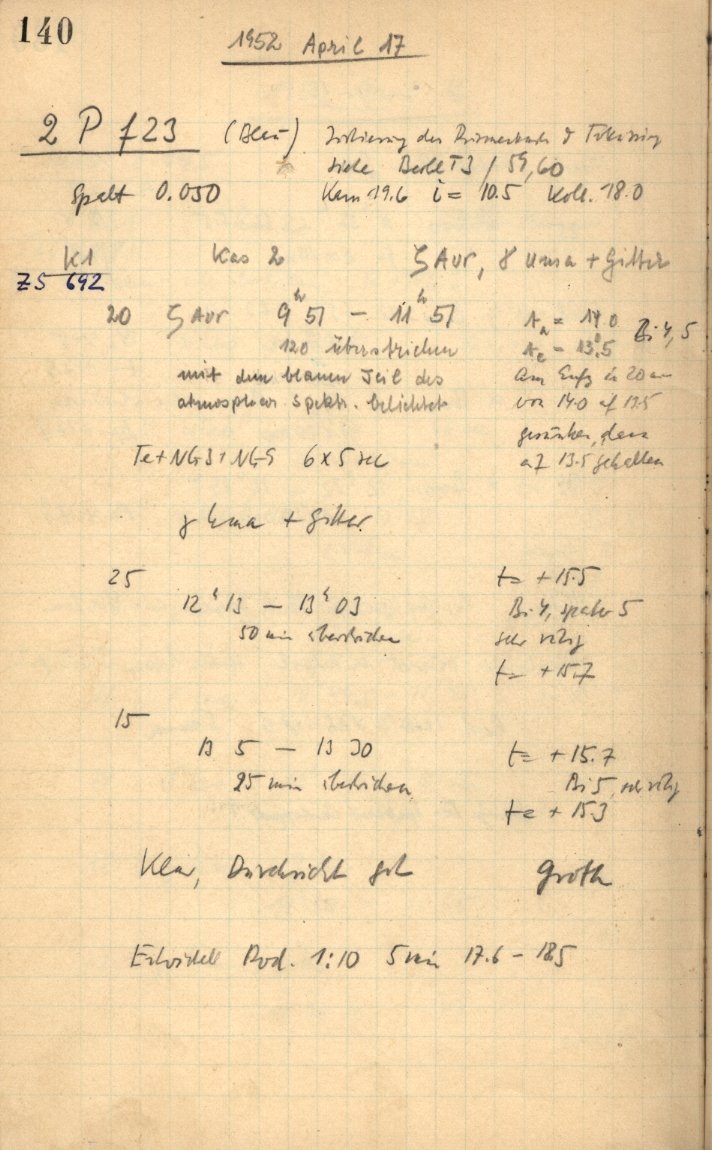 140
1952 April 17
2 P f 23 (Blau) Justierung des &
siehe T3 / 59,60
Spalt 0.050 Kam 19.6 i = 10.5 Koll. 18.0
K1 Kas 2 ζ Aur, γ Uma + Gitter
ZS 692
20 ζ Aur 9h 51 – 11h 51 ta = 14.0 Bi 4,5
120 überstrichen te = 13.5
mit dem blauen Teil des am
atmosphär Spektr. belichtet von 14.0 auf 13.5
gesunken, dann
Te+NG3+NG5 6 x 5 sec auf 13.5 gehalten
γ Uma + Gitter
25 t = +15.5
12h 13 – 13h 03 Bi 4, später 5
50 min überstrichen sehr ruhig
t = +15.7
15
13 5 – 13 30 t = +15.7
25 min überstrichen Bi 5, sehr ruhig
te + 15.3
Klar, Durchsicht gut Groth
Entwickelt Rod. 1:10 5 min 17.6 – 18.5